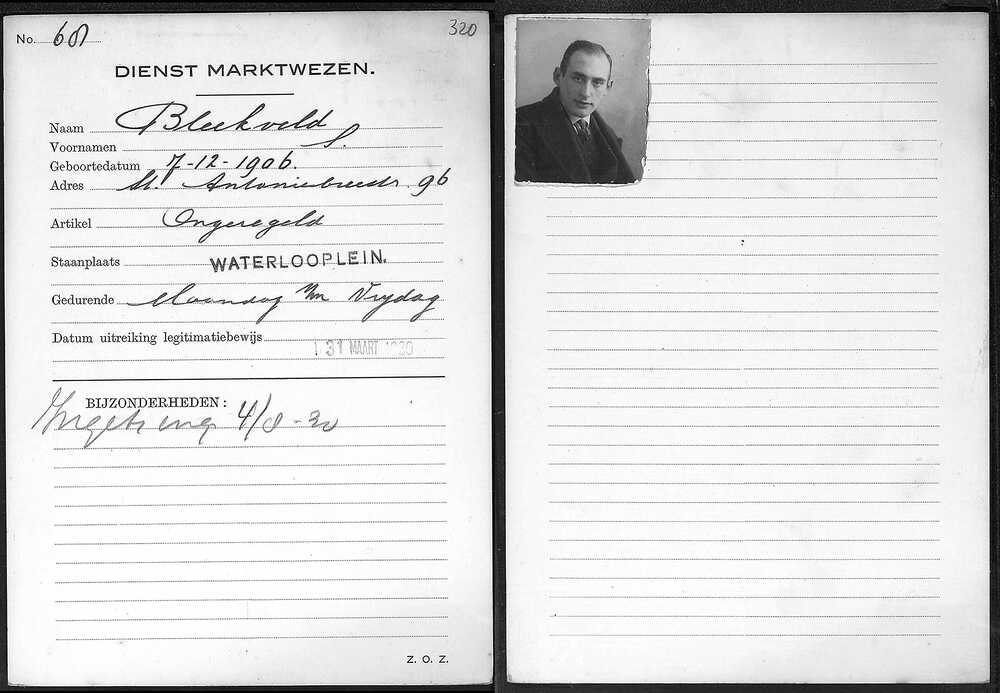 No. 68
320
DIENST MARKTWEZEN.
Naam Bleekveld
Voornamen S.
Geboortedatum 7-12-1906.
Adres St. Antoniebreestr. 96
Artikel Ongeregeld
Staanplaats WATERLOOPLEIN.
Gedurende Maandag t/m Vrijdag
Datum uitreiking legitimatiebewijs 31 MAART 1930
BIJZONDERHEDEN:
Ingetr. 4/8-30
Z. O. Z.